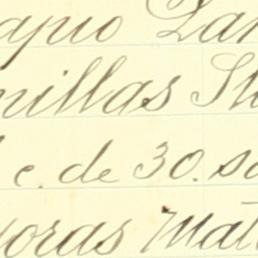 apio Lan
millas St
c. de 30. sa
oras Mat